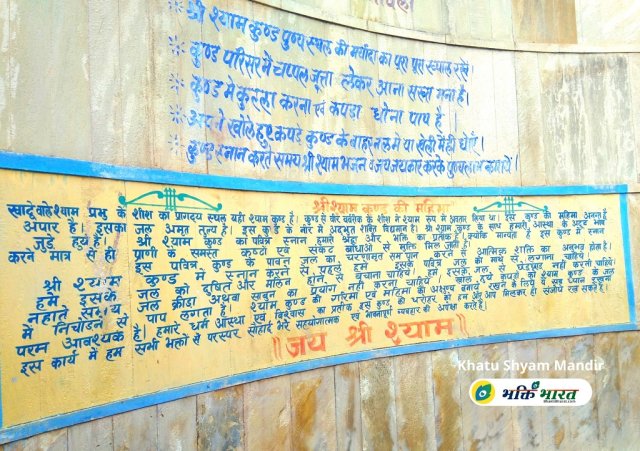 श्री श्याम कुण्ड पुण्य स्थल की मर्यादा का पूरा पूरा ख्याल रखें।
कुण्ड परिसर में चप्पल जूता लेकर आना सख्त मना है।
कुण्ड मे कुल्ला करना एवं कपडा धोना पाप है
कुण्ड के बाहर नल मे या
कुण्ड स्नान करते समय श्री श्याम भजन व जय जयकार करके पुण्य लाभ कमायें।
श्री श्याम कुण्ड की महिमा
खाटू वाले श्याम प्रभु के शीश का प्रागट्य स्थल यही श्याम कुण्ड है। कुण्ड से वीर बर्बरीक के शीश ने श्याम रूप में अवतार लिया था। इस कुण्ड की महिमा
अपार है। इसका जल अमृत तुल्य है। इस कुण्ड के नीर में अदभुत शक्ति विद्यमान है। श्री श्याम कुण्ड के साथ हमारी आस्था के
जुड़े हुये है। श्री श्याम कुण्ड का पवित्र स्नान हमारे श्रद्धा और भक्ति का प्रतीक है।
करने मात्र से ही प्राणी के समस्त कष्टों एवं संकट बाधाओं से मुक्ति मिल जाती है।
इस पवित्र कुण्ड के पावन जल का चरणामृत सम पान करने से आत्मिक शक्ति का अनुभव होता है।
श्री श्याम कुण्ड में स्नान करने से पहले हमे इसके पवित्र जल को माथे से लगाना चाहिये।
हमे इसके जल को दूषित और मलिन होने से बचाना चाहिये।
नहाते समय जल क्रीडा अथवा साबुन का प्रयोग नही करना चाहिये।
में निचोडने से पाप लगता है। श्याम कुण्ड की गरिमा एवं महिमा को अक्षुण्ण बनाये रखने के लिये
परम आवश्यक है। हमारे धर्म आस्था एवं विश्वास का प्रतीक इस कुण्ड की धरोहर को हम और आप मिलकर ही संजोये रख सकते है।
इस कार्य में हम सभी भक्तों से परस्पर सौहार्द भरे सहयोगात्मक एवं भावपूर्ण व्यवहार की अपेक्षा करते है।
॥ जय श्री श्याम ॥
Khatu Shyam Mandir
भक्ति भारत